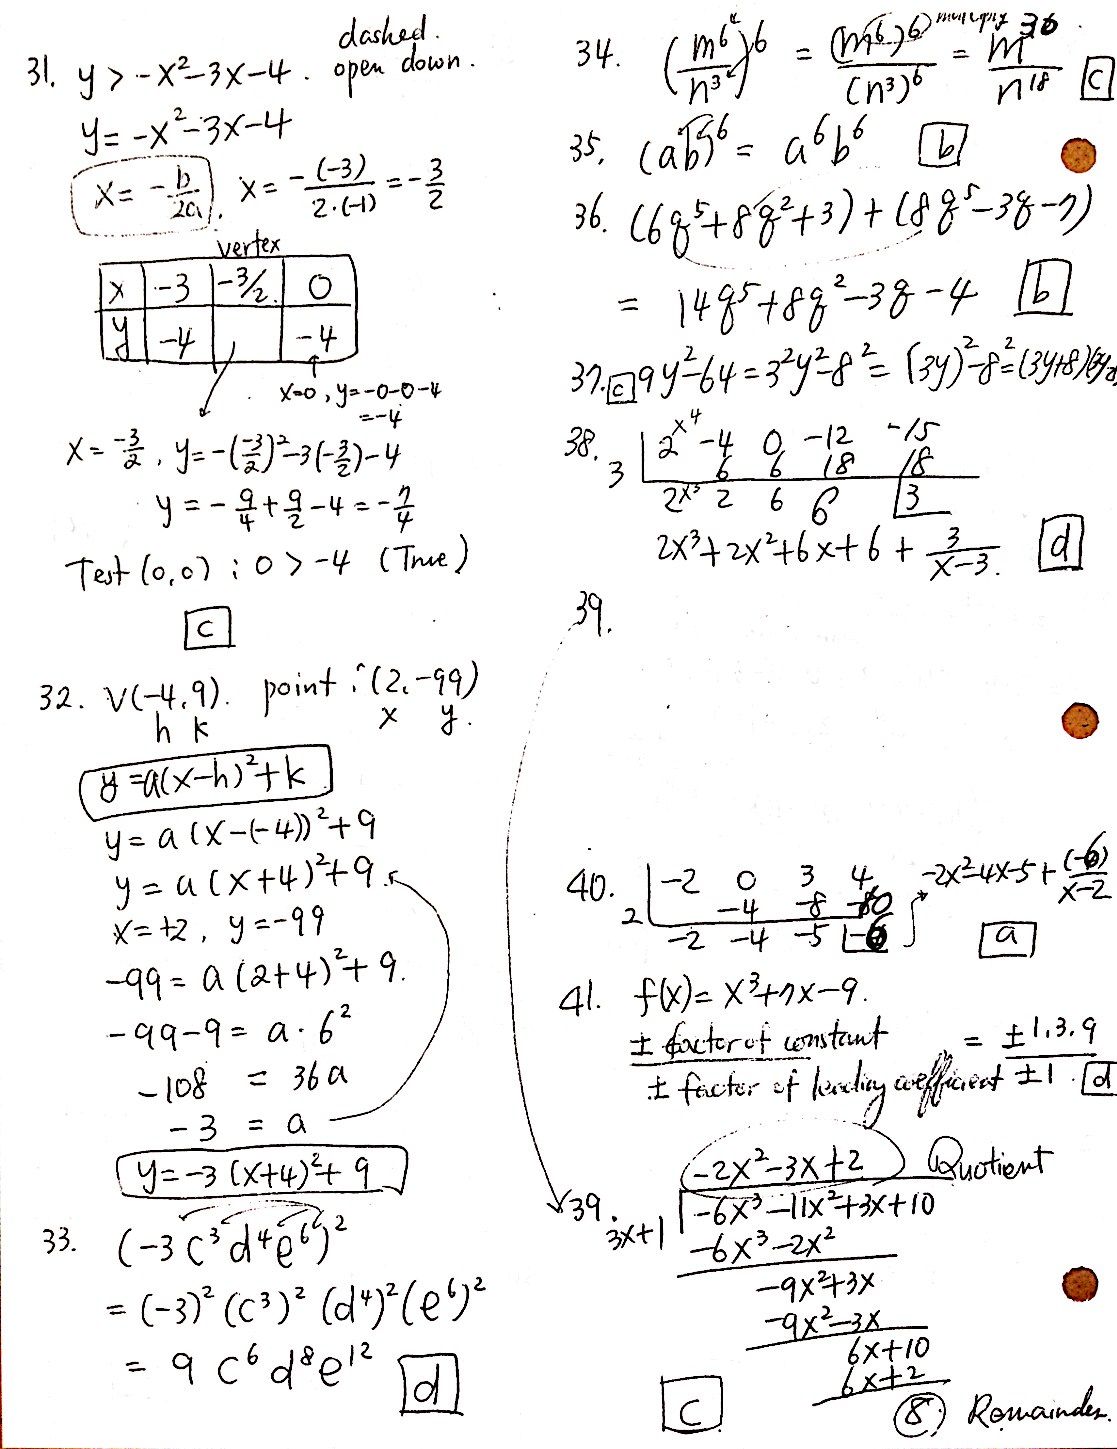 31. y > -x²-3x-4. dashed. open down.
y = -x²-3x-4
x = -b/2a, x = -(-3)/2·(-1) = -3/2
vertex
x | -3 | -3/2 | 0
y | -4 | | -4
x=0, y=-0-0-4
=-4
x = -3/2, y = -(-3/2)²-3(-3/2)-4
y = -9/4+9/2-4 = -7/4
Test (0,0) : 0 > -4 (True)
c
32. V(-4,9). point : (2,-99)
h k x y.
y = a(x-h)²+k
y = a(x-(-4))²+9
y = a(x+4)²+9.
x = +2, y = -99
-99 = a(2+4)²+9.
-99-9 = a·6²
-108 = 36a
-3 = a
y = -3(x+4)²+9
33. (-3c³d⁴e⁶)²
= (-3)²(c³)²(d⁴)²(e⁶)²
= 9c⁶d⁸e¹² d
34. (m⁶/n³)⁶ = (m⁶)⁶/(n³)⁶ multiply = m³⁶/n¹⁸ c
35. (ab)⁶ = a⁶b⁶ b
36. (6q⁵+8q²+3)+(8q⁵-3q-7)
= 14q⁵+8q²-3q-4 b
37. c 9y²-64=3²y²-8²=(3y)²-8²=(3y+8)(3y-8)
38. 2x⁴ -4 0 -12 -15
3 6 6 18 18
2x³ 2 6 6 3
2x³+2x²+6x+6+3/x-3. d
39.
40. -2 0 3 4 -2x²-4x-5+(-6)/x-2
2 -4 -8 -10
-2 -4 -5 -6 a
41. f(x) = x³+7x-9.
± factor of constant = ±1,3,9
± factor of leading coefficient ±1. d
-2x²-3x+2 Quotient
39. 3x+1 -6x³-11x²+3x+10
-6x³-2x²
-9x²+3x
-9x²-3x
6x+10
6x+2
c 8 Remainder.